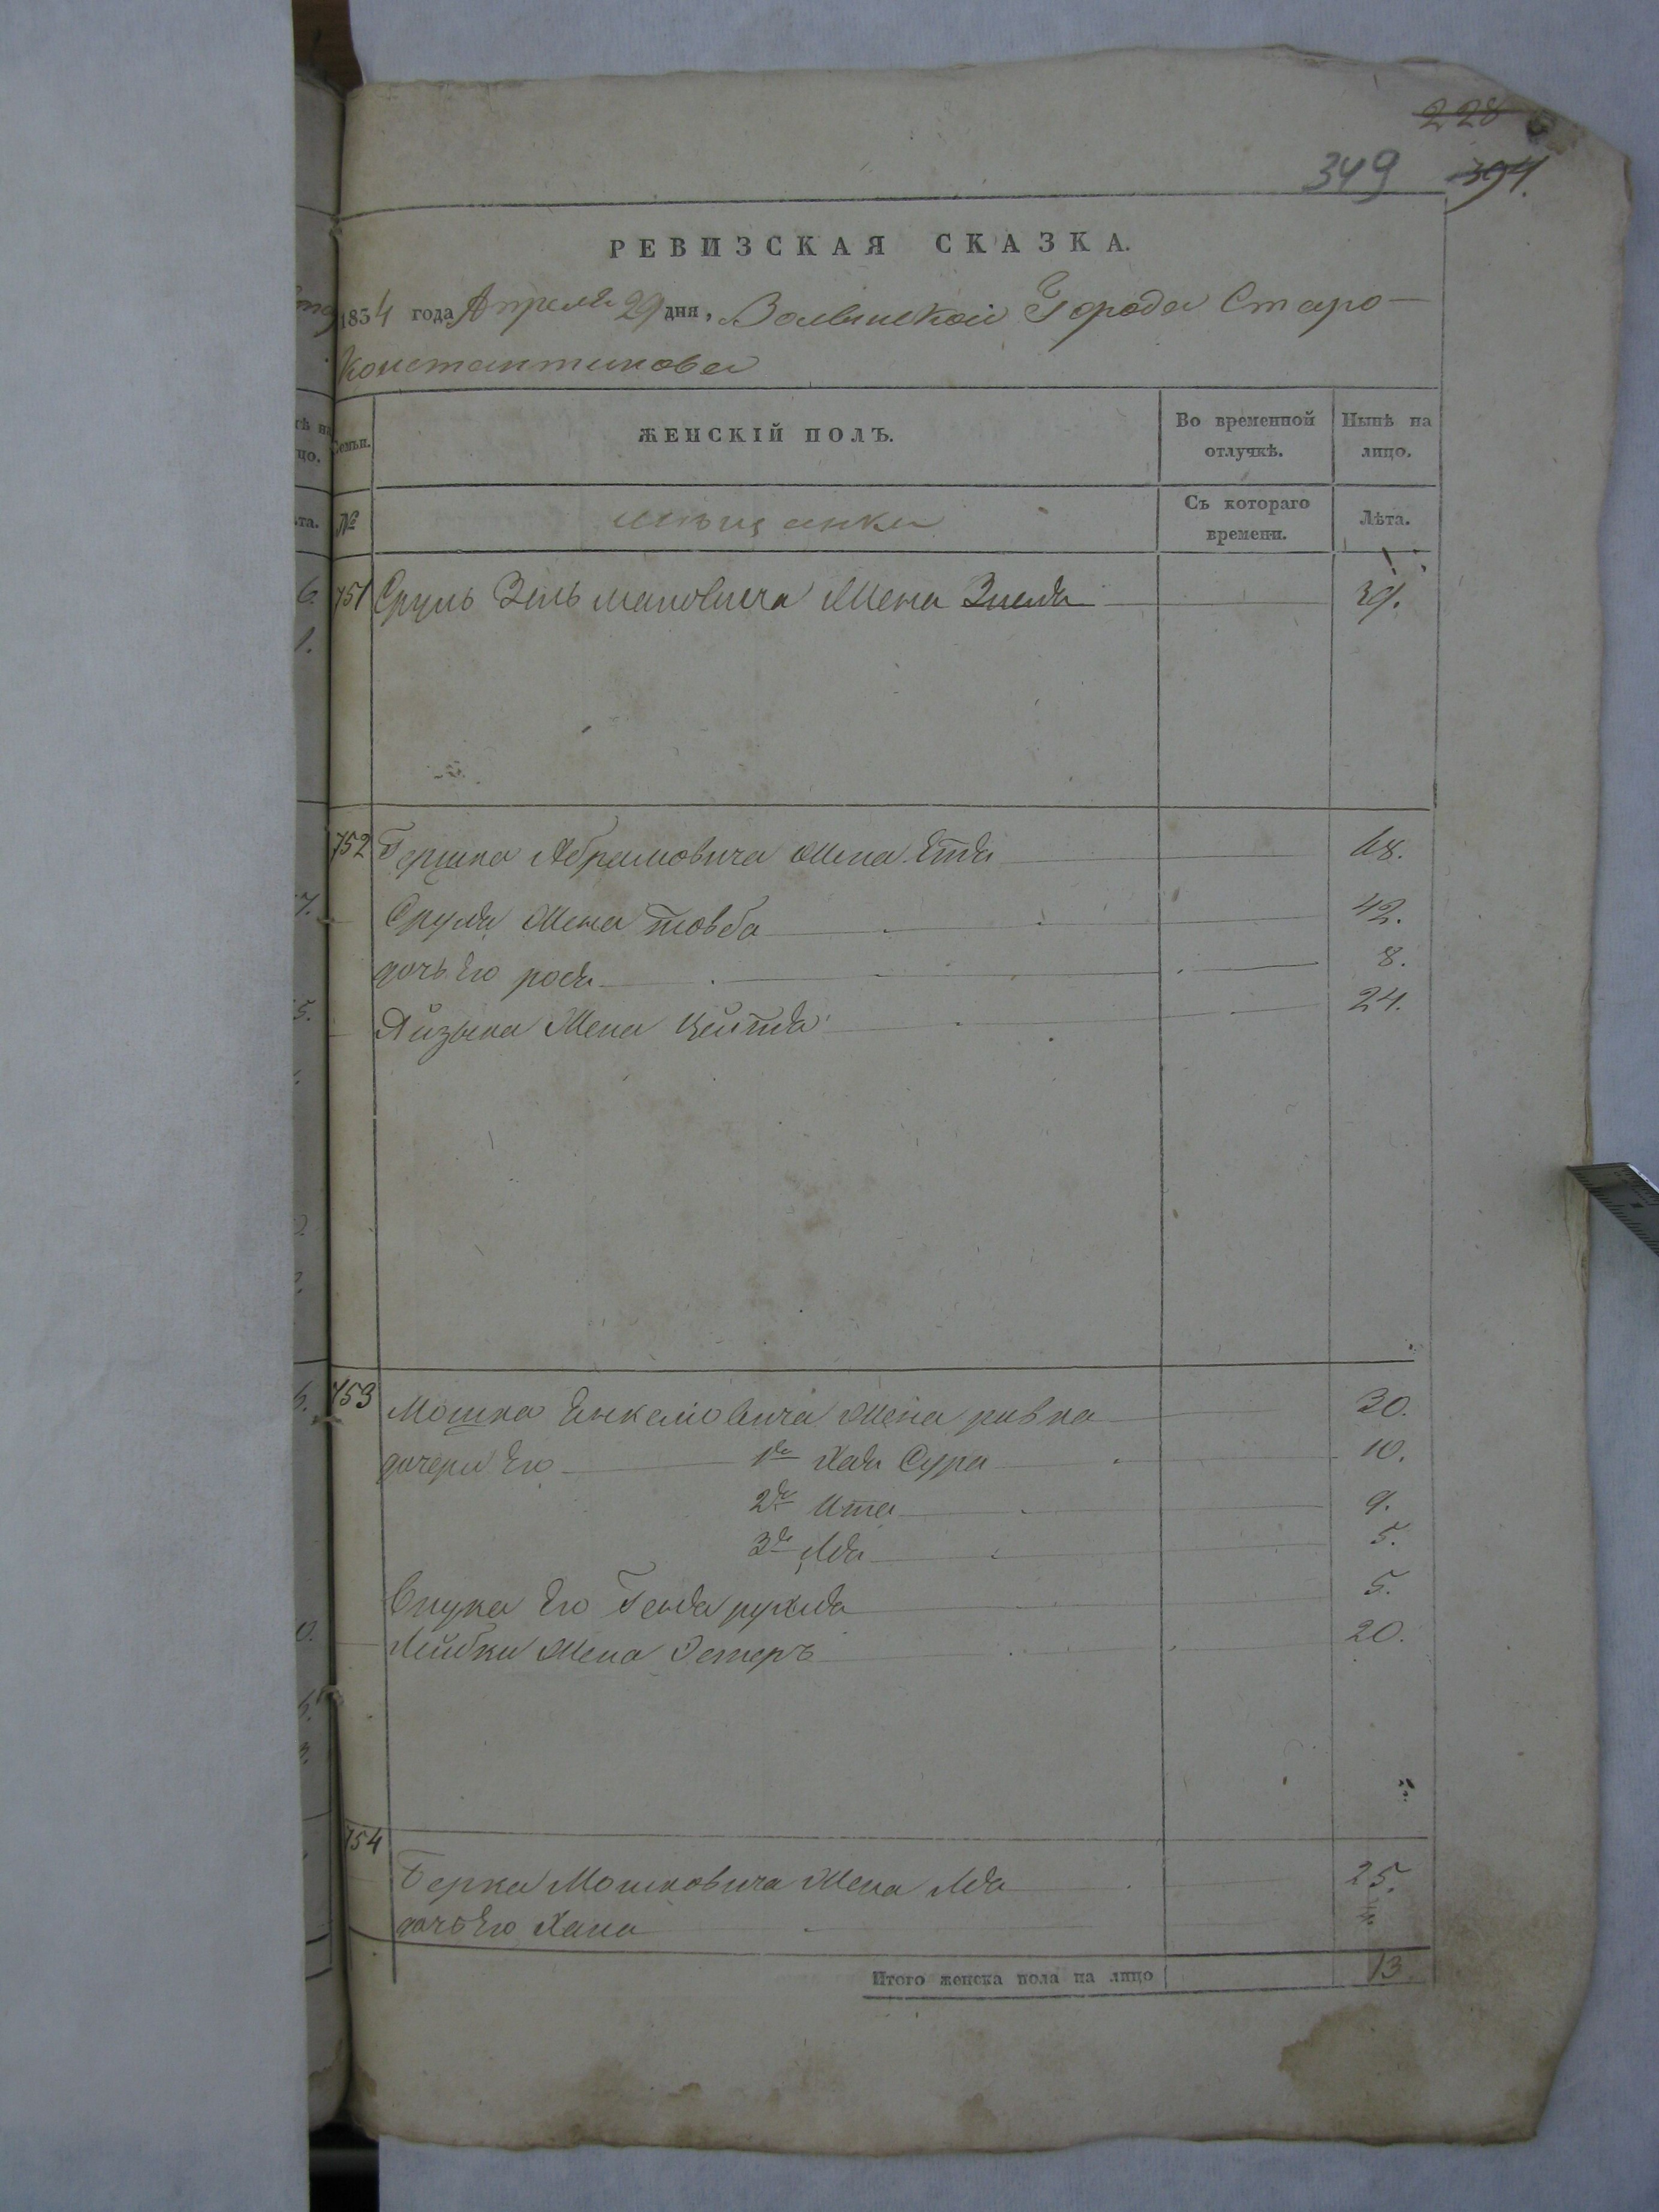 228
349 394.
РЕВИЗСКАЯ СКАЗКА.
1834 года Апреля 29 дня, Волынской Города Старо-
Константинова
Семьи. ЖЕНСКІЙ ПОЛЪ. Во временной отлучкѣ. Нынѣ на лицо.
№ мѣщанки Съ котораго времени. Лѣта.
751 Сруль Зельмановича Жена 39.
752 Гершка Абрамовича Жена Етя 68.
Сруля Жена товба 42.
дочь Его рося 8.
Айзыка Жена Цейтля 24.
753 Мошка Енкелювича Жена ривка 30.
дочери Его 1я Хая Сура 10.
2я Ита 9.
3я Лея 5.
Внука Его Генда рухля 5.
Лейбки Жена Эстеръ 20.
754
Берка Мошковича Жена Лея 25.
дочь Его Хана
Итого женска пола на лицо 13.